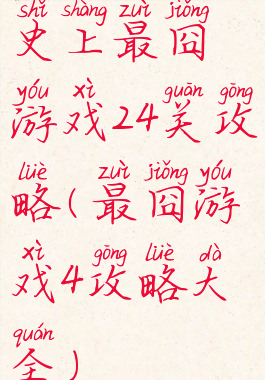 shǐ shàng zuì jiǒng
史上最囧
yóu xì guān gōng
游戏24关攻
lüè zuì jiǒng yóu
略(最囧游
xì gōng lüè dà
戏4攻略大
quán
全)